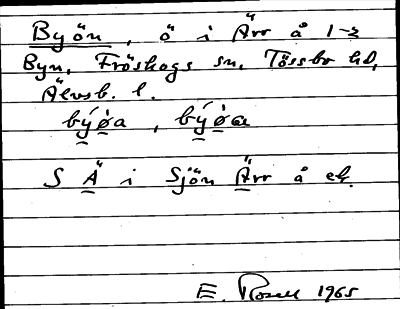 Byön, ö i Ärr å 1-2
Byn, Fröskogs sn, Tössbo hd,
Älvsb. l.
býø̀a, býø̀a
S Ä i Sjön Ärr å ek.
E. Rosell 1965